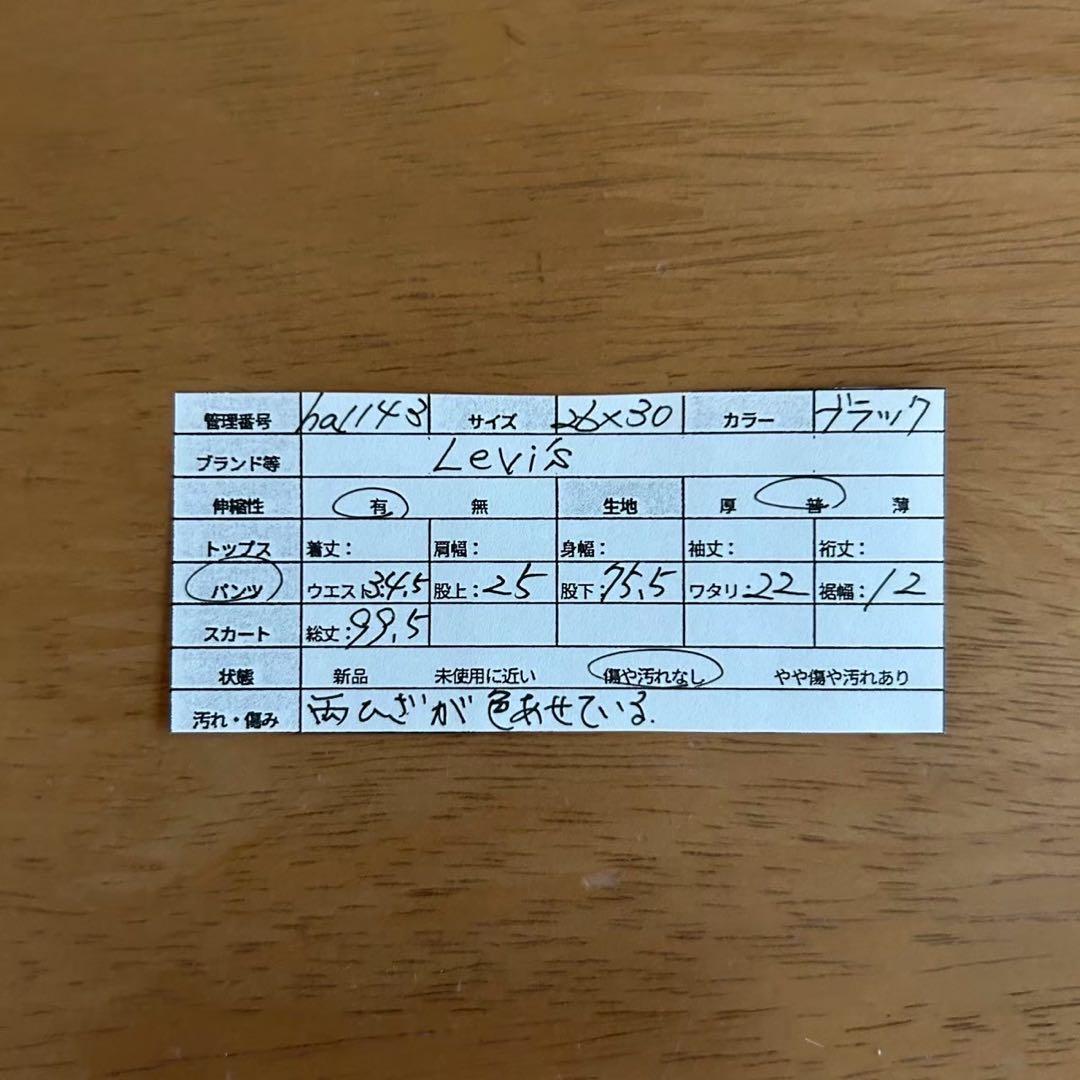 管理番号 hal143 サイズ 26×30 カラー ブラック
ブランド等 Levi's
伸縮性 有 無 生地 厚 普 薄
トップス 着丈: 肩幅: 身幅: 袖丈: 裄丈:
パンツ ウエスト:34.5 股上:25 股下:75.5 ワタリ:22 裾幅:12
スカート 総丈:99.5
状態 新品 未使用に近い 傷や汚れなし やや傷や汚れあり
汚れ・傷み 両ひざが色あせている.